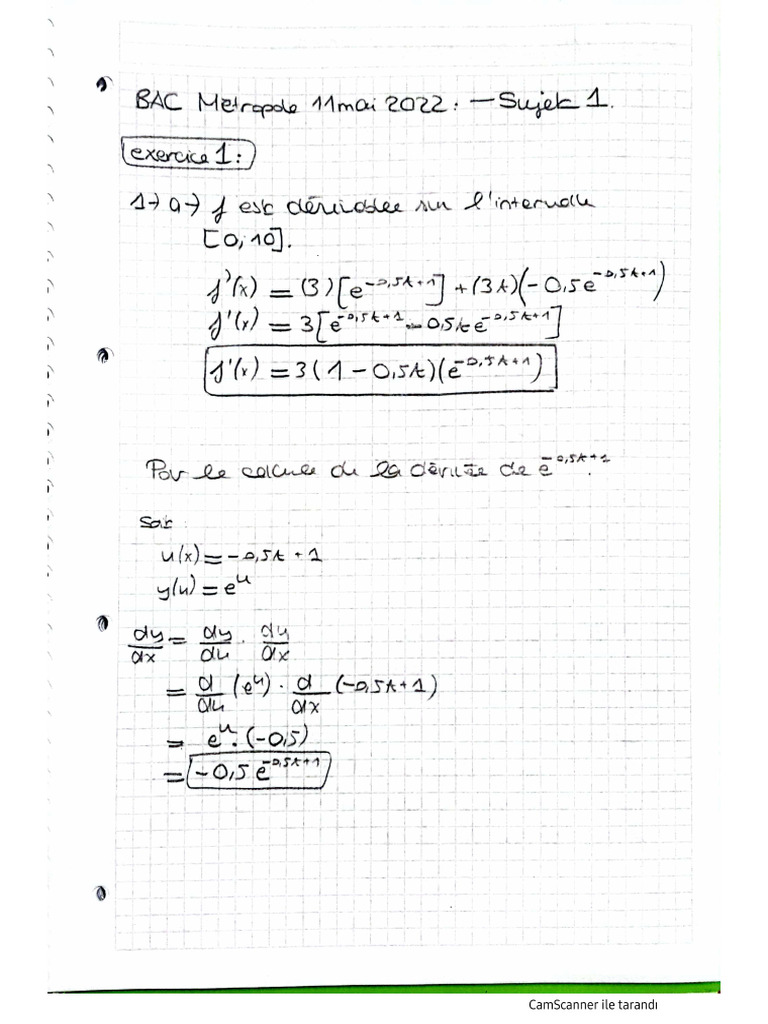 BAC Métropole 11 mai 2022 : — Sujet 1.
exercice 1 :
1→ a→ f est dérivable sur l'intervalle
[0, 10].
f'(x) = (3)[e^{-0,5t+1}] + (3t)(-0,5e^{-0,5t+1})
f'(x) = 3[e^{-0,5t+1} - 0,5te^{-0,5t+1}]
f'(x) = 3(1-0,5t)(e^{-0,5t+1})
le de la dérivée de e^{-0,5t+1}.
u(x) = -0,5t + 1
y(u) = e^u
dy/dx = dy/du · du/dx
= d/du (e^u) · d/dx (-0,5t+1)
= e^u · (-0,5)
= -0,5 e^{-0,5t+1}
CamScanner ile tarandı